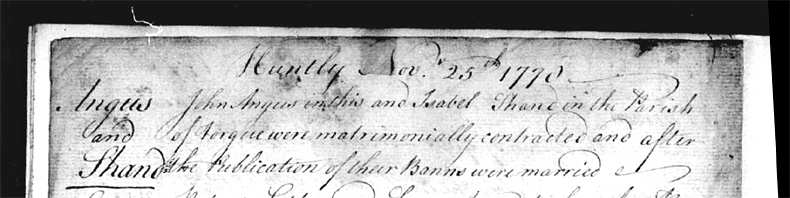 Huntly Novr. 25th 1770
Angus John Angus in this and Isabel Shand in the Parish
and of Forgue were matrimonially contracted and after
Shand the Publication of their Banns were married